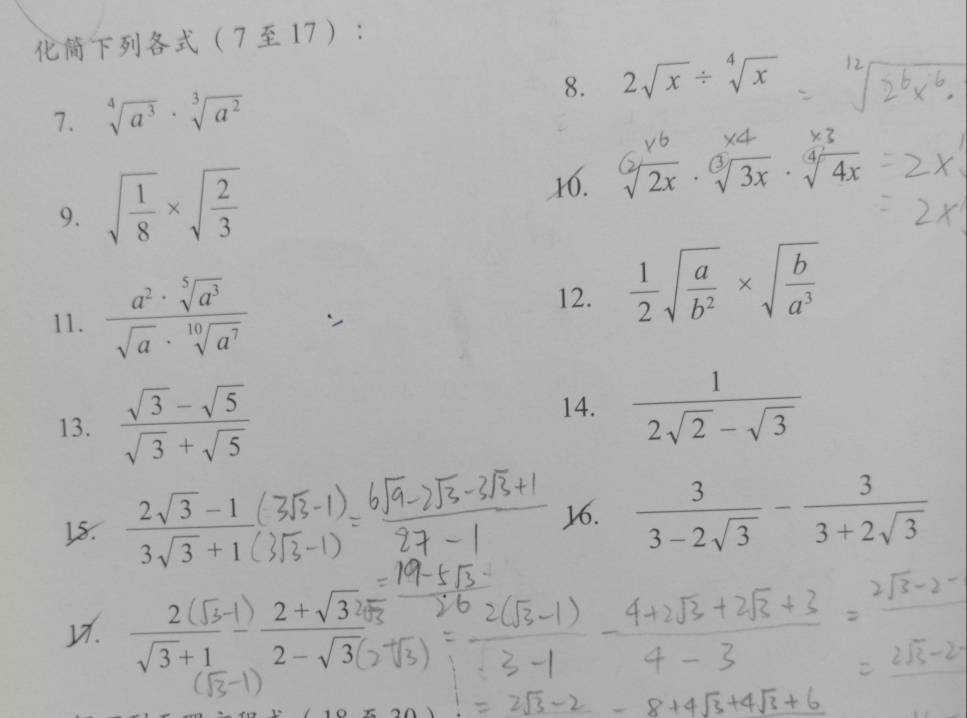 化简下列各式（7至17）：
7. \sqrt[4]{a^3} · \sqrt[3]{a^2}
8. 2\sqrt{x} ÷ \sqrt[4]{x} = \sqrt[12]{2^6x^6·
9. \sqrt{\frac{1}{8}} × \sqrt{\frac{2}{3}}
×6 ×4 ×3
10. \sqrt[2]{2x} · \sqrt[3]{3x} · \sqrt[4]{4x} = 2x
= 2x
11. \frac{a^2 · \sqrt[5]{a^3}}{\sqrt{a} · \sqrt[10]{a^7}}
12. \frac{1}{2}\sqrt{\frac{a}{b^2}} × \sqrt{\frac{b}{a^3}}
13. \frac{\sqrt{3} - \sqrt{5}}{\sqrt{3} + \sqrt{5}}
14. \frac{1}{2\sqrt{2} - \sqrt{3}}
15. \frac{2\sqrt{3} - 1 (3\sqrt{3}-1)}{3\sqrt{3} + 1 (3\sqrt{3}-1)} = \frac{6\sqrt{9}-2\sqrt{3}-3\sqrt{3}+1}{27-1}
= \frac{19-5\sqrt{3}}{26}
16. \frac{3}{3 - 2\sqrt{3}} - \frac{3}{3 + 2\sqrt{3}}
17. \frac{2(\sqrt{3}-1)}{\sqrt{3} + 1 (\sqrt{3}-1)} - \frac{2 + \sqrt{3}}{2 - \sqrt{3}(2+\sqrt{3})} = \frac{2(\sqrt{3}-1)}{3-1} - \frac{4+2\sqrt{3}+2\sqrt{3}+3}{4-3} = 2\sqrt{3}-2-
= 2\sqrt{3}-2-
= 2\sqrt{3}-2 - 8+4\sqrt{3}+4\sqrt{3}+6